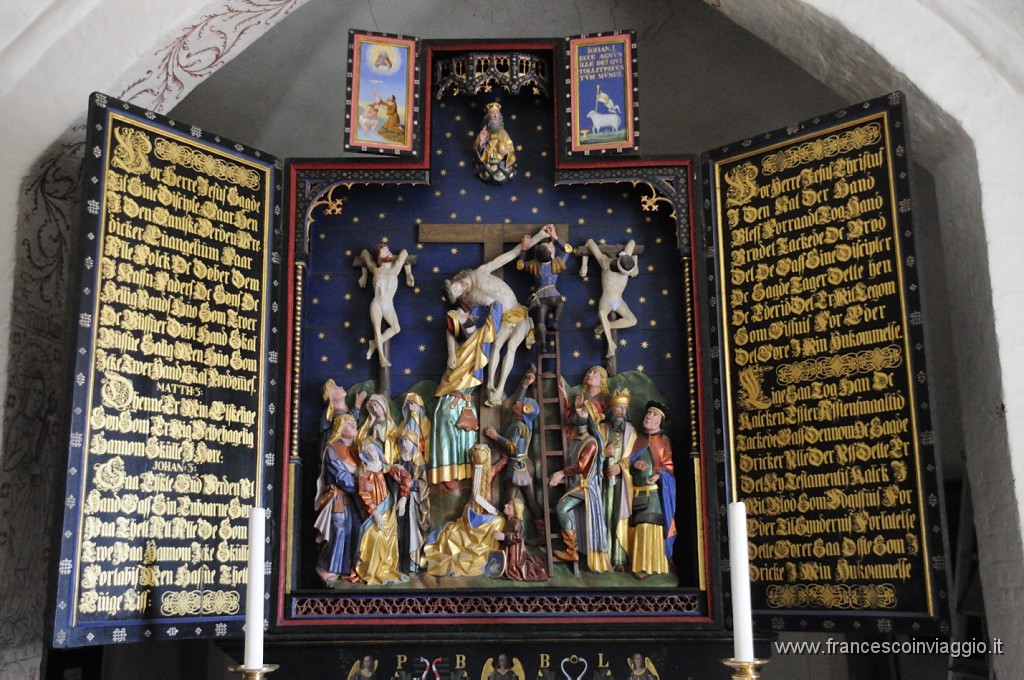 IOHAN. I
ECCE AGNVS
ILLE DEI QVI
TOLLIT PECCA
TVM MVNDI.
Vor Herre Jesus Sagde
Til Sine Disciple Gaar Hen
I Den Gantske Verden Lære
Alle Folck Oc Døber Dem
I Nafn Faders Oc Søns Oc
Hellig Aands Hvo Som Troer
Oc Bliffuer Døbt Hand Skal
Men Hvo Som
Icke Troer Hand Skal Fordømes.
MATTH: 3:
Denne Er Min Elskelige
Søn Som Er Vel Behagelig
Hannom Skulle I Høre.
IOHAN: 3:
Saa Elste Gud Verden At
Hand Gaf Sin Enbaarne Søn
Paa Thet At Alle De Som
Troe Paa Hannom Icke Skulle
Fortabis Men Hafue Thet
Euige Liff:
Vor Herre Jesus Christus
I Den Nat Der Hand
Bleff Forraad Tog Hand
Brødet Tackede Oc Brød
Det Oc Gaff Sine Discipler
Oc Sagde Tager Dette Hen
Oc Æder Det Er Mit Legom
Som Gifuis For Eder
Det Giøre I Min Hukommelse.
Lige Saa Tog Han Oc
Kalcken Efter Aftensmaaltid
Tackede Gaff Dennom Oc Sagde
Dricker Alle Der Aff Dette Er
Det Ny Testamentis Kalck I
Mit Blod Som Udgiufis For
Eder Til Syndernis Forlatelse
Dette Giører Saa Ofte Som I
Dricke I Min Hukommelse
P B B L
www.francescoinviaggio.it